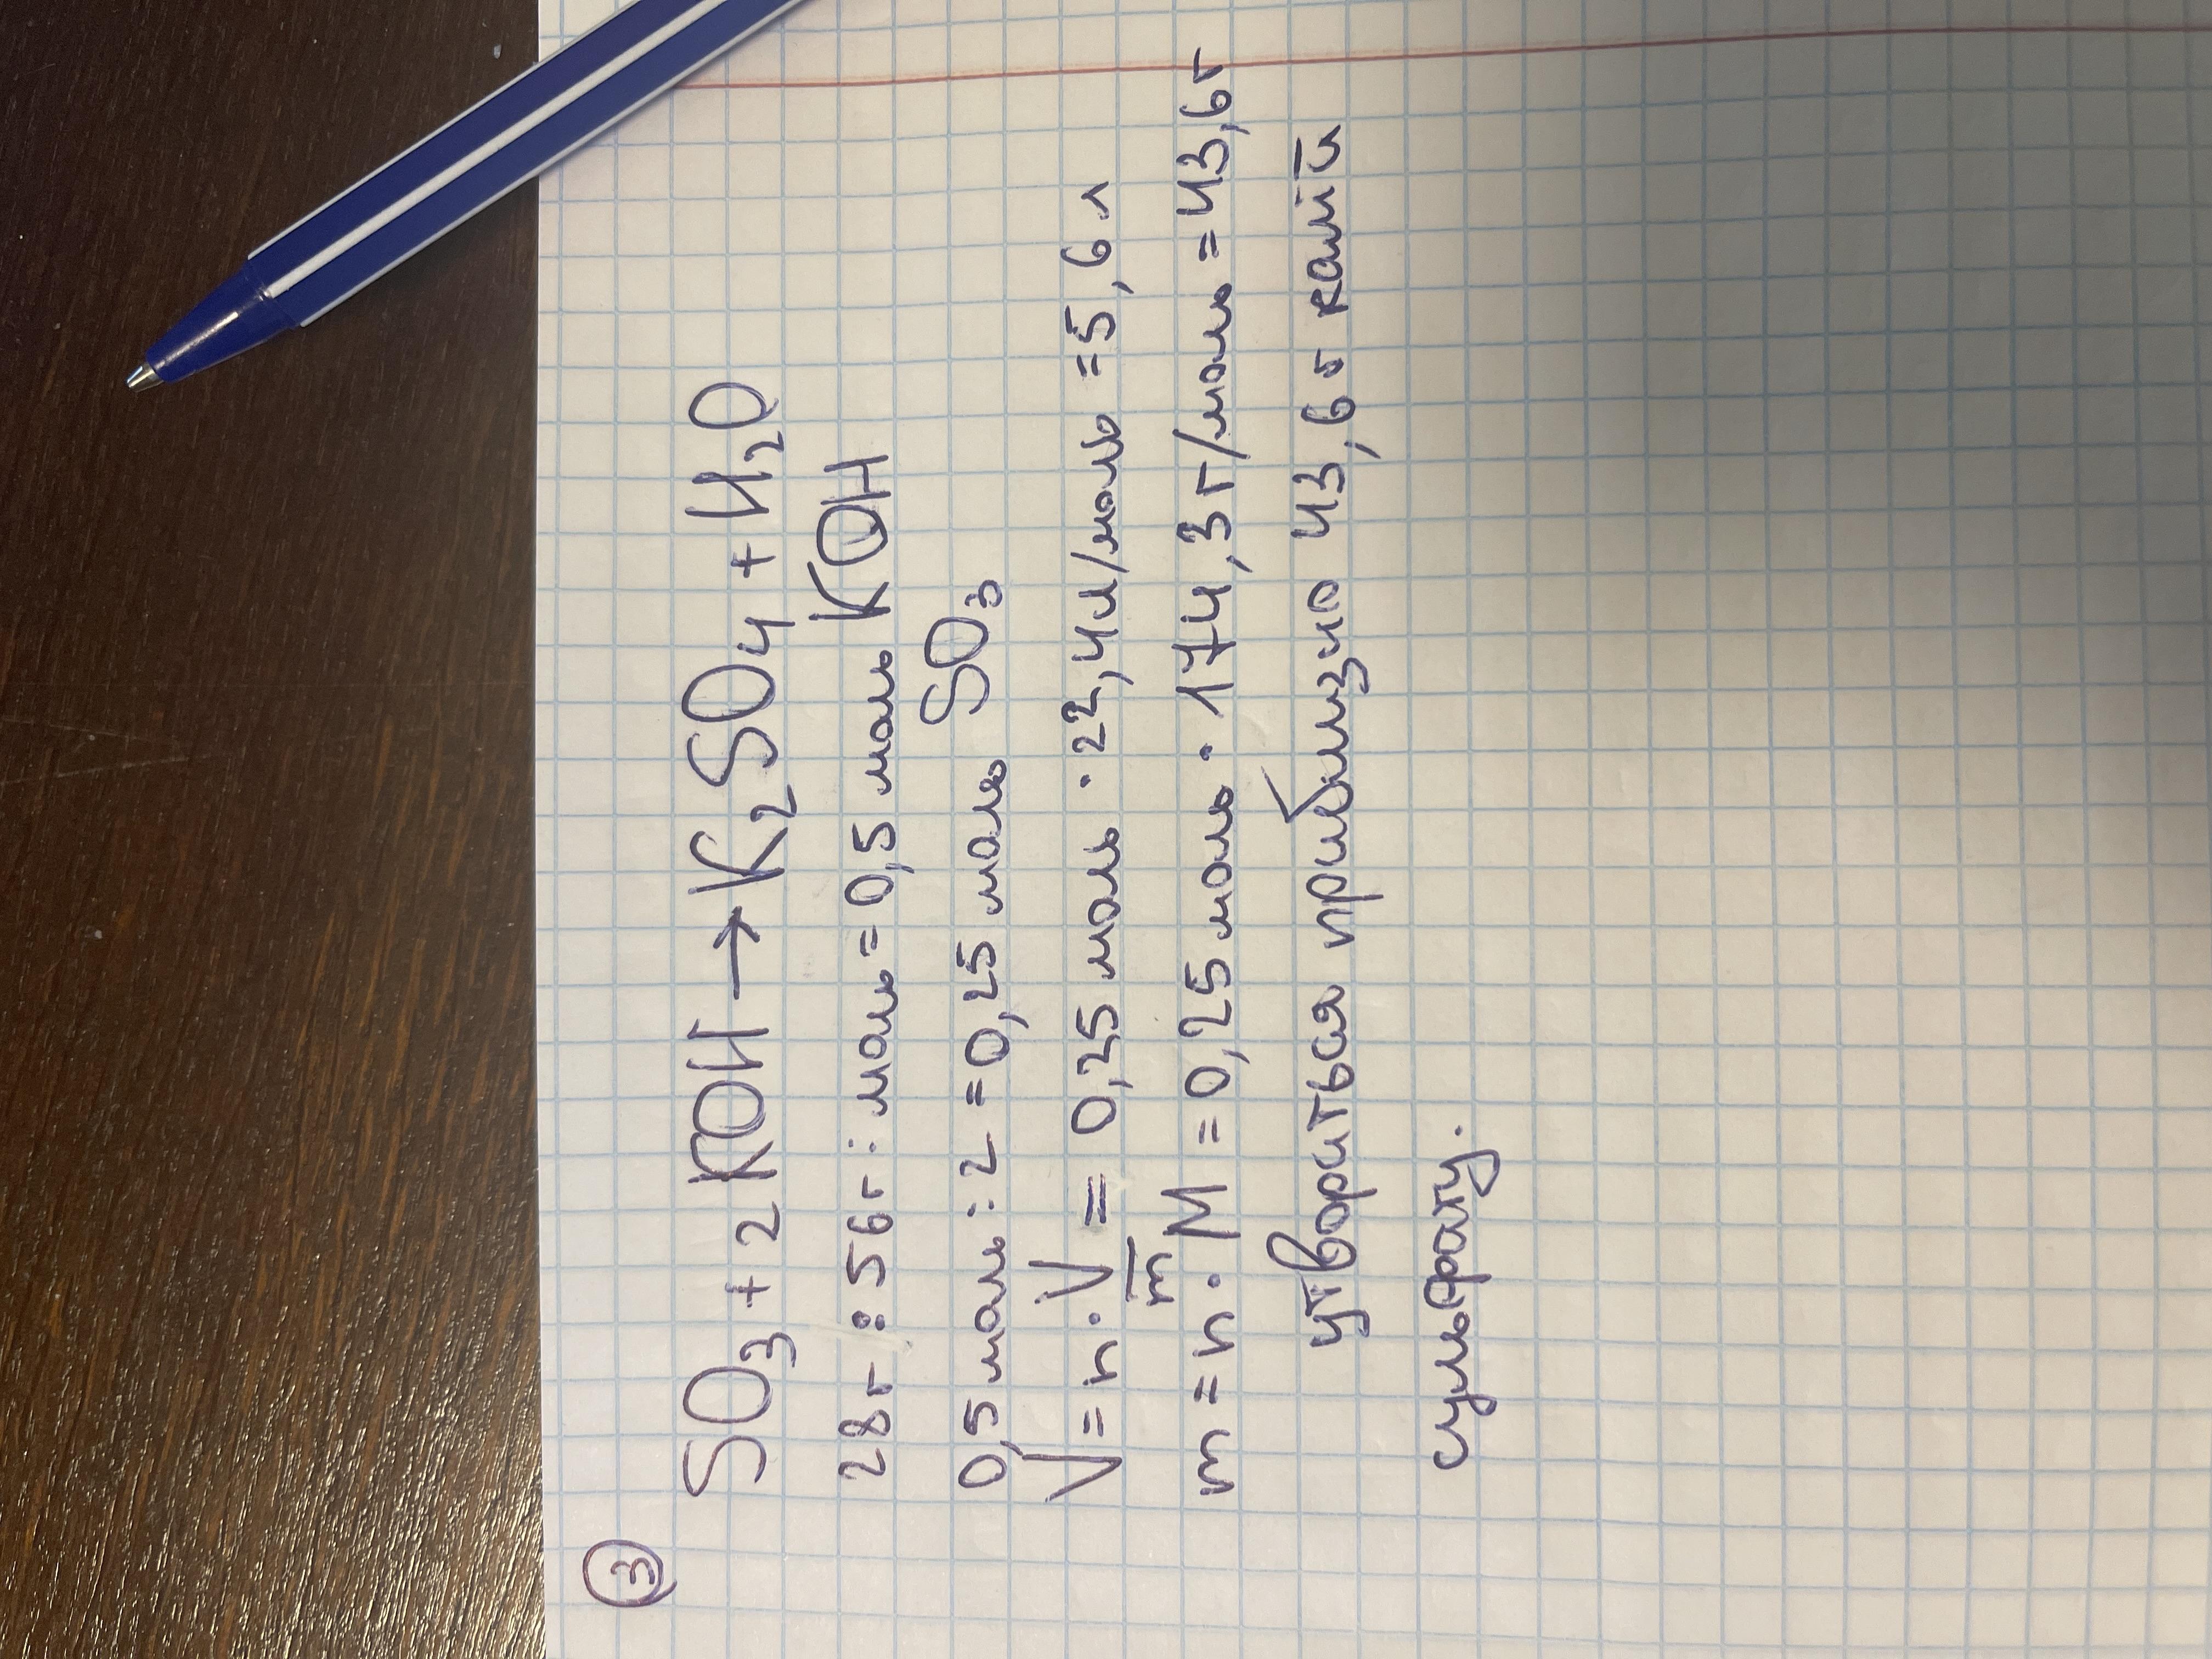 ③
SO₃ + 2KOH → K₂SO₄ + H₂O
28г : 56г : моль = 0,5 моль KOH
0,5 моль : 2 = 0,25 моль SO₃
V = n · Vm = 0,25 моль · 22,4л/моль = 5,6 л
m = n · M = 0,25 моль · 174,3г/моль = 43,6г
утвориться приблизно 43,6 г калій
сульфату.